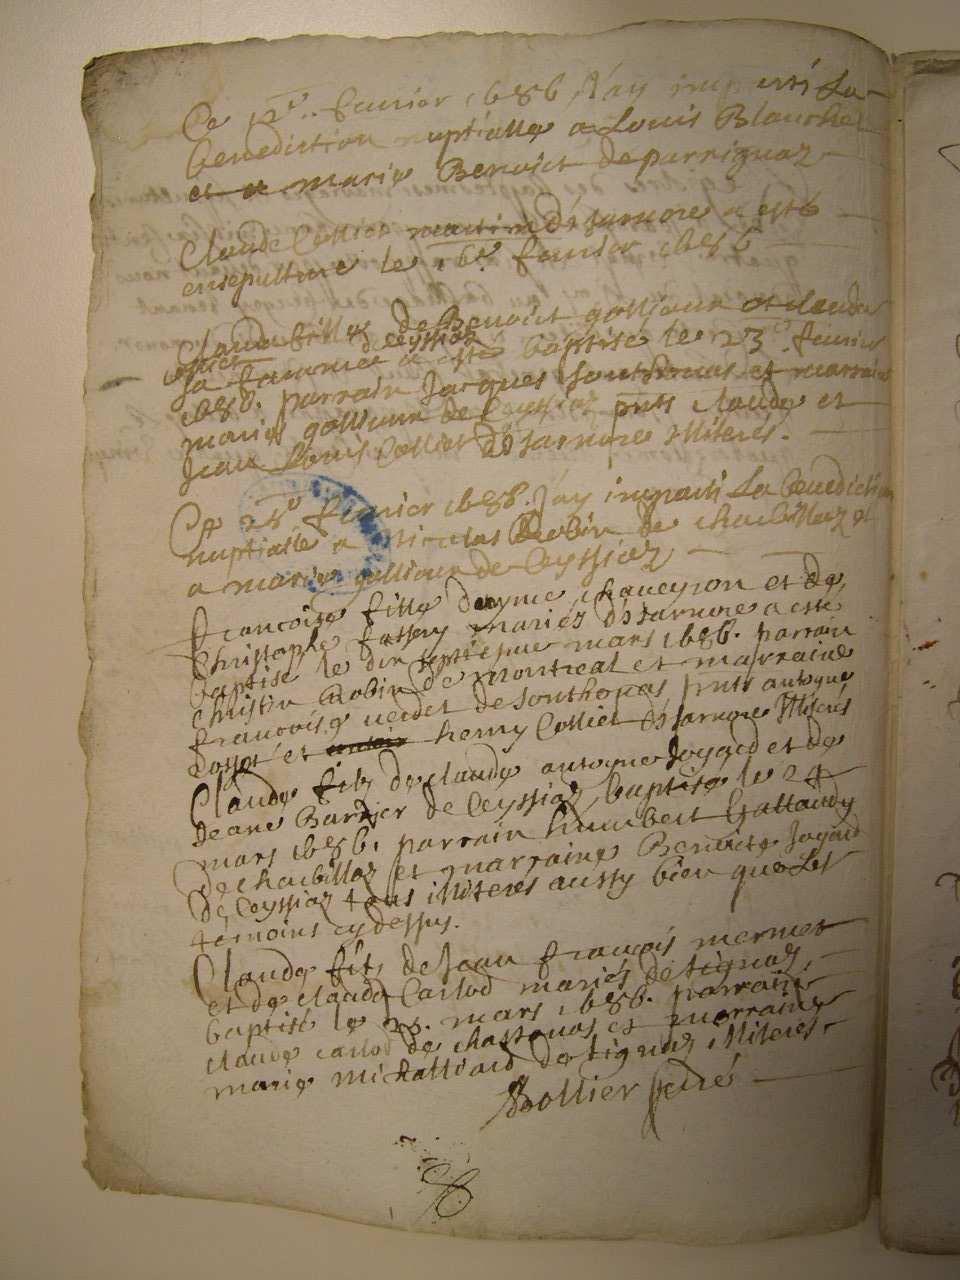 Ce 12e.. feurier 1686 J'ay imparti La
benediction nuptialle a Louis Blanchet
et a marie Benoict de parrignaz
Claude Collier d'Isarnore a esté
ensepulturé le 16e feurier 1686
Claude fils de Benoict golliour et claude
collier de ceyssiaz
sa famme a esté baptisé le 23e. feurier
1686. parrain Jacques et marraine
marie golliour de Ceyssiaz pnts claude et
Jean Louis Collet d'Isarnore illiterés.
Ce 25e feurier 1686. J'ay imparti La benediction
nuptialle a nicolas Robin de chaibillaz et
a marie golliour de Ceyssiaz
francoise fille d'ayme chaueyron et de
christophe mariés d'Isarnore a esté
baptisé le dix septiesme mars 1686. parrain
christin Robin de montreal et marraine
francoise uerdet de Sonthonas pnts antoyne
et henry Collier d'Isarnore illiterés
Claude fils de claude antoyne Joyard et de
Jeane Barbier de Ceyssiaz, baptisé le 24
mars 1686. parrain humbert
de chaibillaz et marraine Benoicte Joyard
de Ceyssiaz tous illiterés aussy bien que Les
temoins cy dessus.
Claude fils de Jean francois mermet
et de claude Carlod mariés de tignaz,
baptisé le 25. mars 1686. parrain
claude carlod de chassonas et marraine
marie mitalliard de tignaz illiterés.
Bollier curé